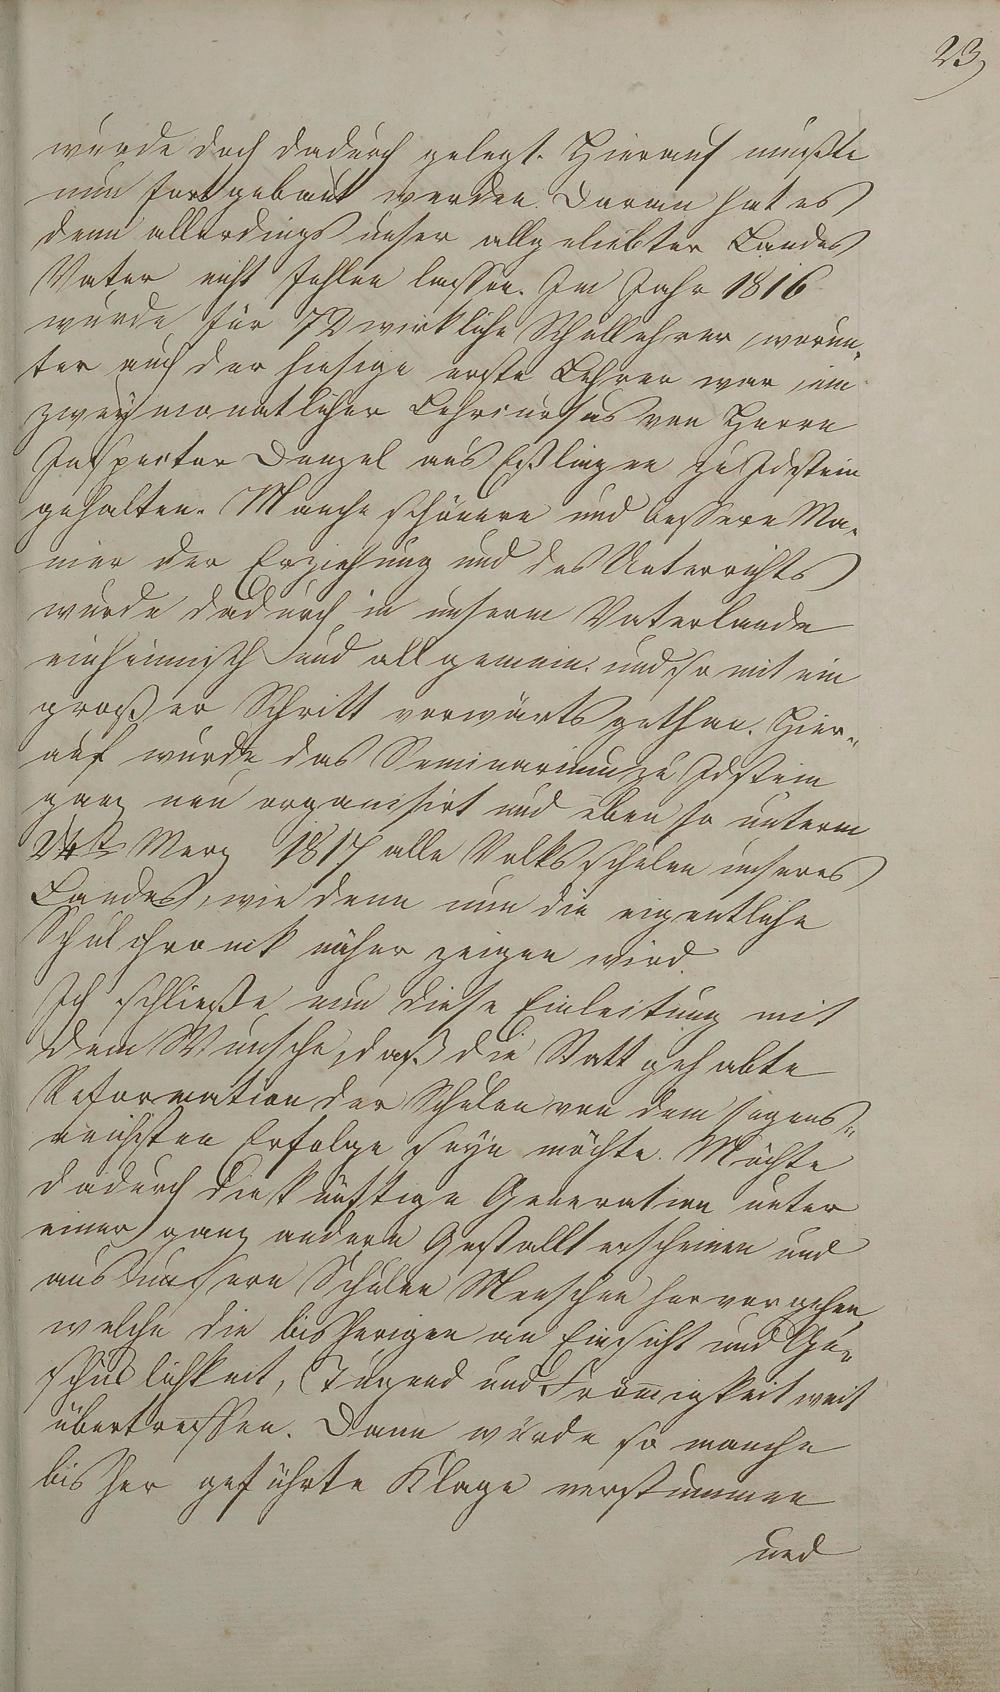 23
wurde doch dadurch gelegt. Hierauf mußte
nun fortgebaut werden. Daran hat es
denn allerdings unser allgeliebter Landes
Vater nicht fehlen lassen. Im Jahr 1816
wurde für 72 wirkliche Schullehrer, worun-
ter auch der hiesige erste Lehrer war, ein
zweymonatlicher Lehrcursus von Herrn
Inspector Denzel aus Eßlingen zu Idstein
gehalten. Manche schönere und bessere Ma-
nier der Erziehung und des Unterrichts
wurde dadurch in unserm Vaterlande
einheimisch und allgemein, und so mit ein
großer Schritt vorwärts gethan. Hier-
auf wurde das Seminarium zu Idstein
ganz neu organisirt und eben so unterm
24st Merz 1817 alle Volksschulen unseres
Landes, wie denn nun die eigentliche
Schulchronik näher zeigen wird.
Ich schließe nun diese Einleitung mit
dem Wunsche, daß die Statt gehabte
Reformation der Schulen von dem segens-
reichsten Erfolge seyn möchte. Möchte
dadurch die künftige Generation unter
einer ganz andern Gestallt erscheinen und
aus unsern Schulen Menschen hervorgehen,
welche die bisherigen an Einsicht und Ge-
schicklichkeit, Tugend und Frömigkeit weit
übertreffen. Dann würde so manche
bisher geführte Klage verstummen
und